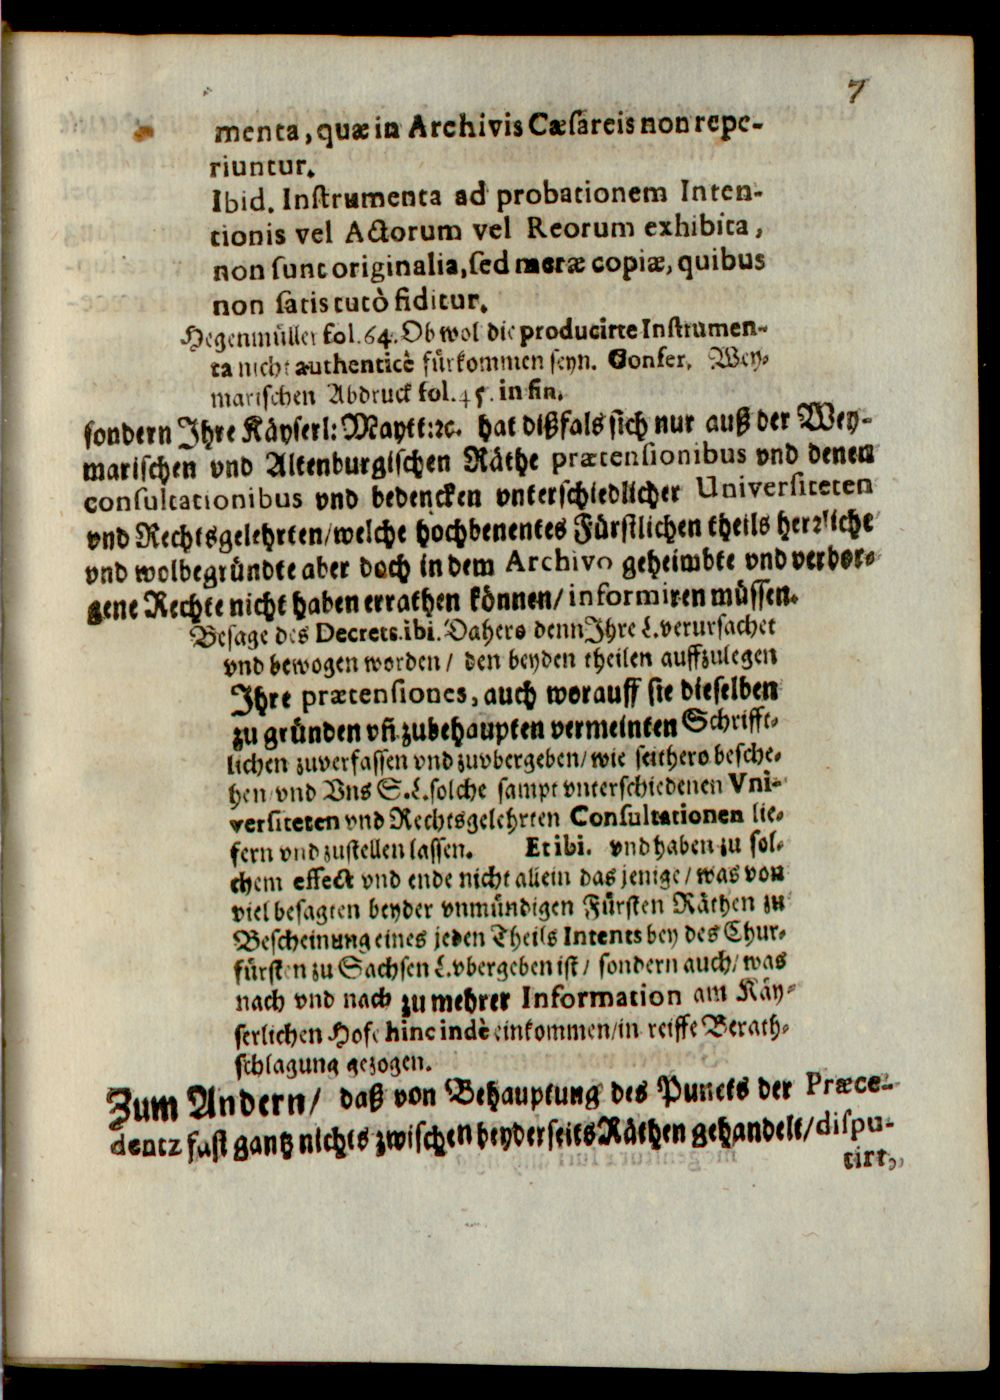 7
menta, quæ in Archivis Cæſareis non repe-
riuntur.
Ibid. Inſtrumenta ad probationem Inten-
tionis vel Actorum vel Reorum exhibita,
non ſunt originalia, ſed meræ copiæ, quibus
non ſatis tutò fiditur.
Hegenmüller fol. 64. Ob wol die producirte Inſtrumen-
ta nicht authenticè fürkommen ſeyn. Confer. Wey-
mariſchen Abdruck fol. 45. in fin.
ſondern Jhre Käyſerl: Maytt: ꝛc. hat dißfals ſich nur auß der Wey-
mariſchen vnd Altenburgiſchen Räthe prætenſionibus vnd denen
conſultationibus vnd bedencken vnterſchiedlicher Univerſiteten
vnd Rechtsgelehrten/ welche hochbenentes Fürſtlichen theils herzliche
vnd wolbegründte aber doch in dem Archivo geheimbte vnd verbor-
gene Rechte nicht haben errathen können/ informiren müſſen.
Beſage des Decrets. ibi. Dahero denn Jhre L. verurſachet
vnd bewogen worden/ den beyden theilen auffzulegen
Jhre prætenſiones, auch worauff ſie dieſelben
zu gründen vñ zubehaupten vermeinten Schrifft-
lichen zuverfaſſen vnd zuvbergeben/ wie ſeithero beſche-
hen vnd Vns S. L. ſolche ſampt vnterſchiedenen Vni-
verſiteten vnd Rechtsgelehrten Conſultationen lie-
fern vnd zuſtellen laſſen. Et ibi. vnd haben zu ſol-
chem effect vnd ende nicht allein das jenige/ was von
viel beſagten beyder vnmündigen Fürſten Räthen zu
Beſcheinung eines jeden Theils Intents bey des Chur-
fürſten zu Sachſen L. vbergeben iſt/ ſondern auch/ was
nach vnd nach zu mehrer Information am Käy-
ſerlichen Hofe hinc indè einkommen/ in reiffe Berath-
ſchlagung gezogen.
Zum Andern/ daß von Behauptung des Puncts der Præce-
dentz faſt gantz nichts zwiſchen beyderſeits Räthen gehandelt/ diſpu-
tirt,